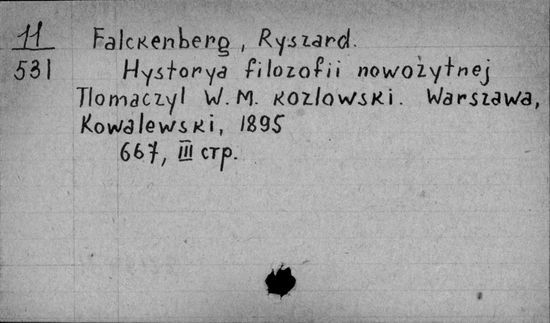 11 Falckenberg, Ryszard.
531 Hystorya filozofii nowożytnej
Tlomaczyl W. M. Kozlowski. Warszawa,
Kowalewski, 1895
667, III стр.